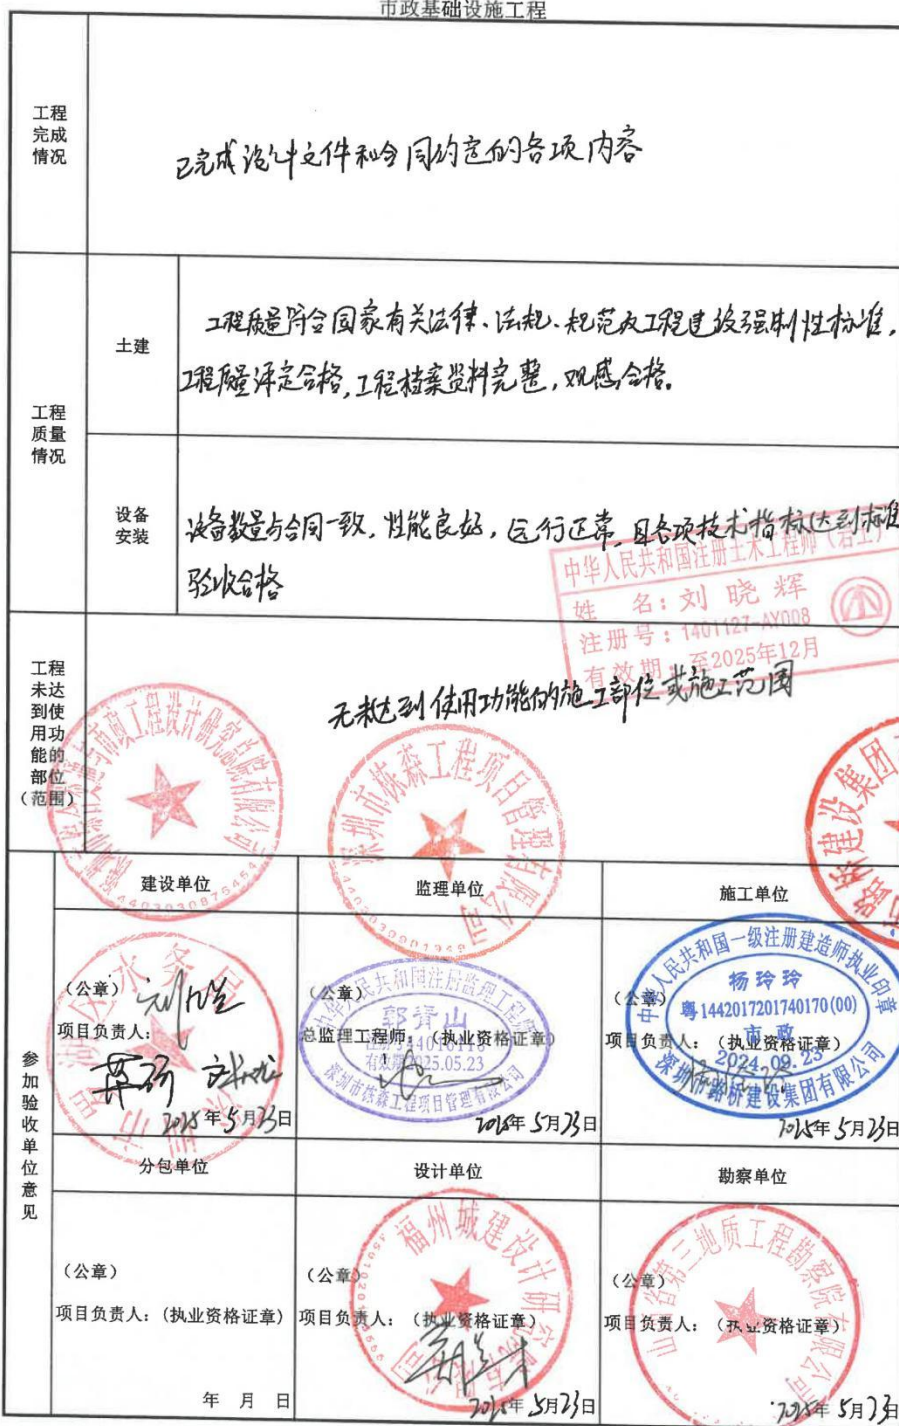 市政基础设施工程
工程
完成
情况
已完成设计文件和合同约定的各项内容
工程
质量
情况
土建
工程质量符合国家有关法律、法规、规范及工程建设强制性标准,
工程质量评定合格,工程档案资料完整,观感合格。
设备
安装
设备数量与合同一致,性能良好,运行正常,且各项技术指标达到标准
验收合格
中华人民共和国注册土木工程师(岩土)
姓 名:刘晓辉
注册号:1401127-AY008
有效期:至2025年12月
工程
未达
到使
用功
能的
部位
(范围)
无未达到使用功能的施工部位或施工范围
深圳市栋森工程项目管理有限公司
路桥建设集团
参
加
验
收
单
位
意
见
建设单位
监理单位
施工单位
(公章)
项目负责人:
2025年5月23日
(公章)
总监理工程师:(执业资格证章)
中华人民共和国注册监理工程师
郭青山
有效期2025.05.23
深圳市栋森工程项目管理有限公司
2025年5月23日
(公章)
项目负责人:(执业资格证章)
中华人民共和国一级注册建造师执业印章
杨玲玲
粤1442017201740170(00)
市政
2024.09.23
深圳市路桥建设集团有限公司
2025年5月23日
分包单位
设计单位
勘察单位
(公章)
项目负责人:(执业资格证章)
年 月 日
(公章)
项目负责人:(执业资格证章)
福州城建设计研究院有限公司
2025年5月23日
(公章)
项目负责人:(执业资格证章)
山西省第三地质工程勘察院有限公司
2025年5月23日